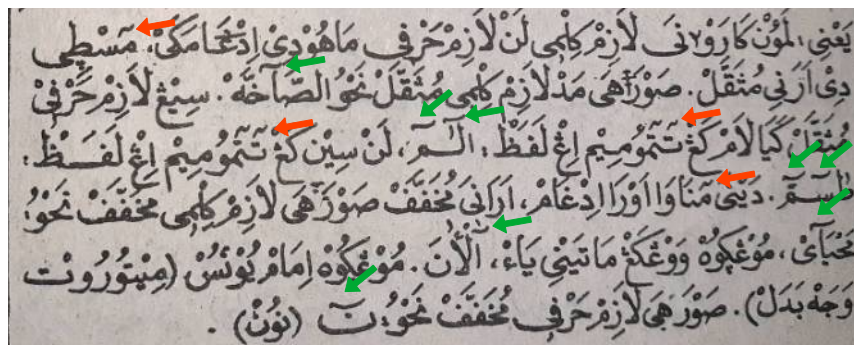 يَعْنِي، لَمَوْن كَارَوْنَىٰ لَازِمْ كِلْمِى لَنْ لَازِمْ حَرْفِى مَاهُوْ دِىْ اِدْغَامَكَىْ، مٓسْطِي
دِىْ اَرَنِي مُثَقَّلْ. صَوْرَهَىْ مَدْ لَازِمْ كِلْمِى مُثَقَّلْ نَحْوُ الصَّآخَّهْ. سِيْڠ لَازِمْ حَرْفِىْ
مُثَقَّلْ كَيَا لَامْ كَڠْ تٓتٓمُو مِيمْ اِڠْ لَفَظْ: الٓـمٓ، لَنْ سِيْن كَڠْ تٓتٓمُو مِيْم اِڠْ لَفَـظْ:
طٰسٓـمٓ. دَيْنَىْ مٓنَاوَا اَوْرَا اِدْغَامْ، اَرَانَىْ مُخَفَّفْ صَوْرَهَىْ لَازِمْ كِلْمِى مُخَفَّفْ نَحْوُ:
مَحْيَآىْ، مُوْڠْڮُوْهْ وَوْڠْ كَڠْ مَاتَيْنِي يَاءْ، آلْأٰنَ. مُوْڠْڮُوْهْ اِمَامْ يُوْنُسْ (مِيْتُوْرُوْت
وَجَهْ بَدَلْ). صَوْرَهَىْ لَازِمْ حَرْفِى مُخَفَّفْ نَحْوُ: نٓ (نُوْنْ).